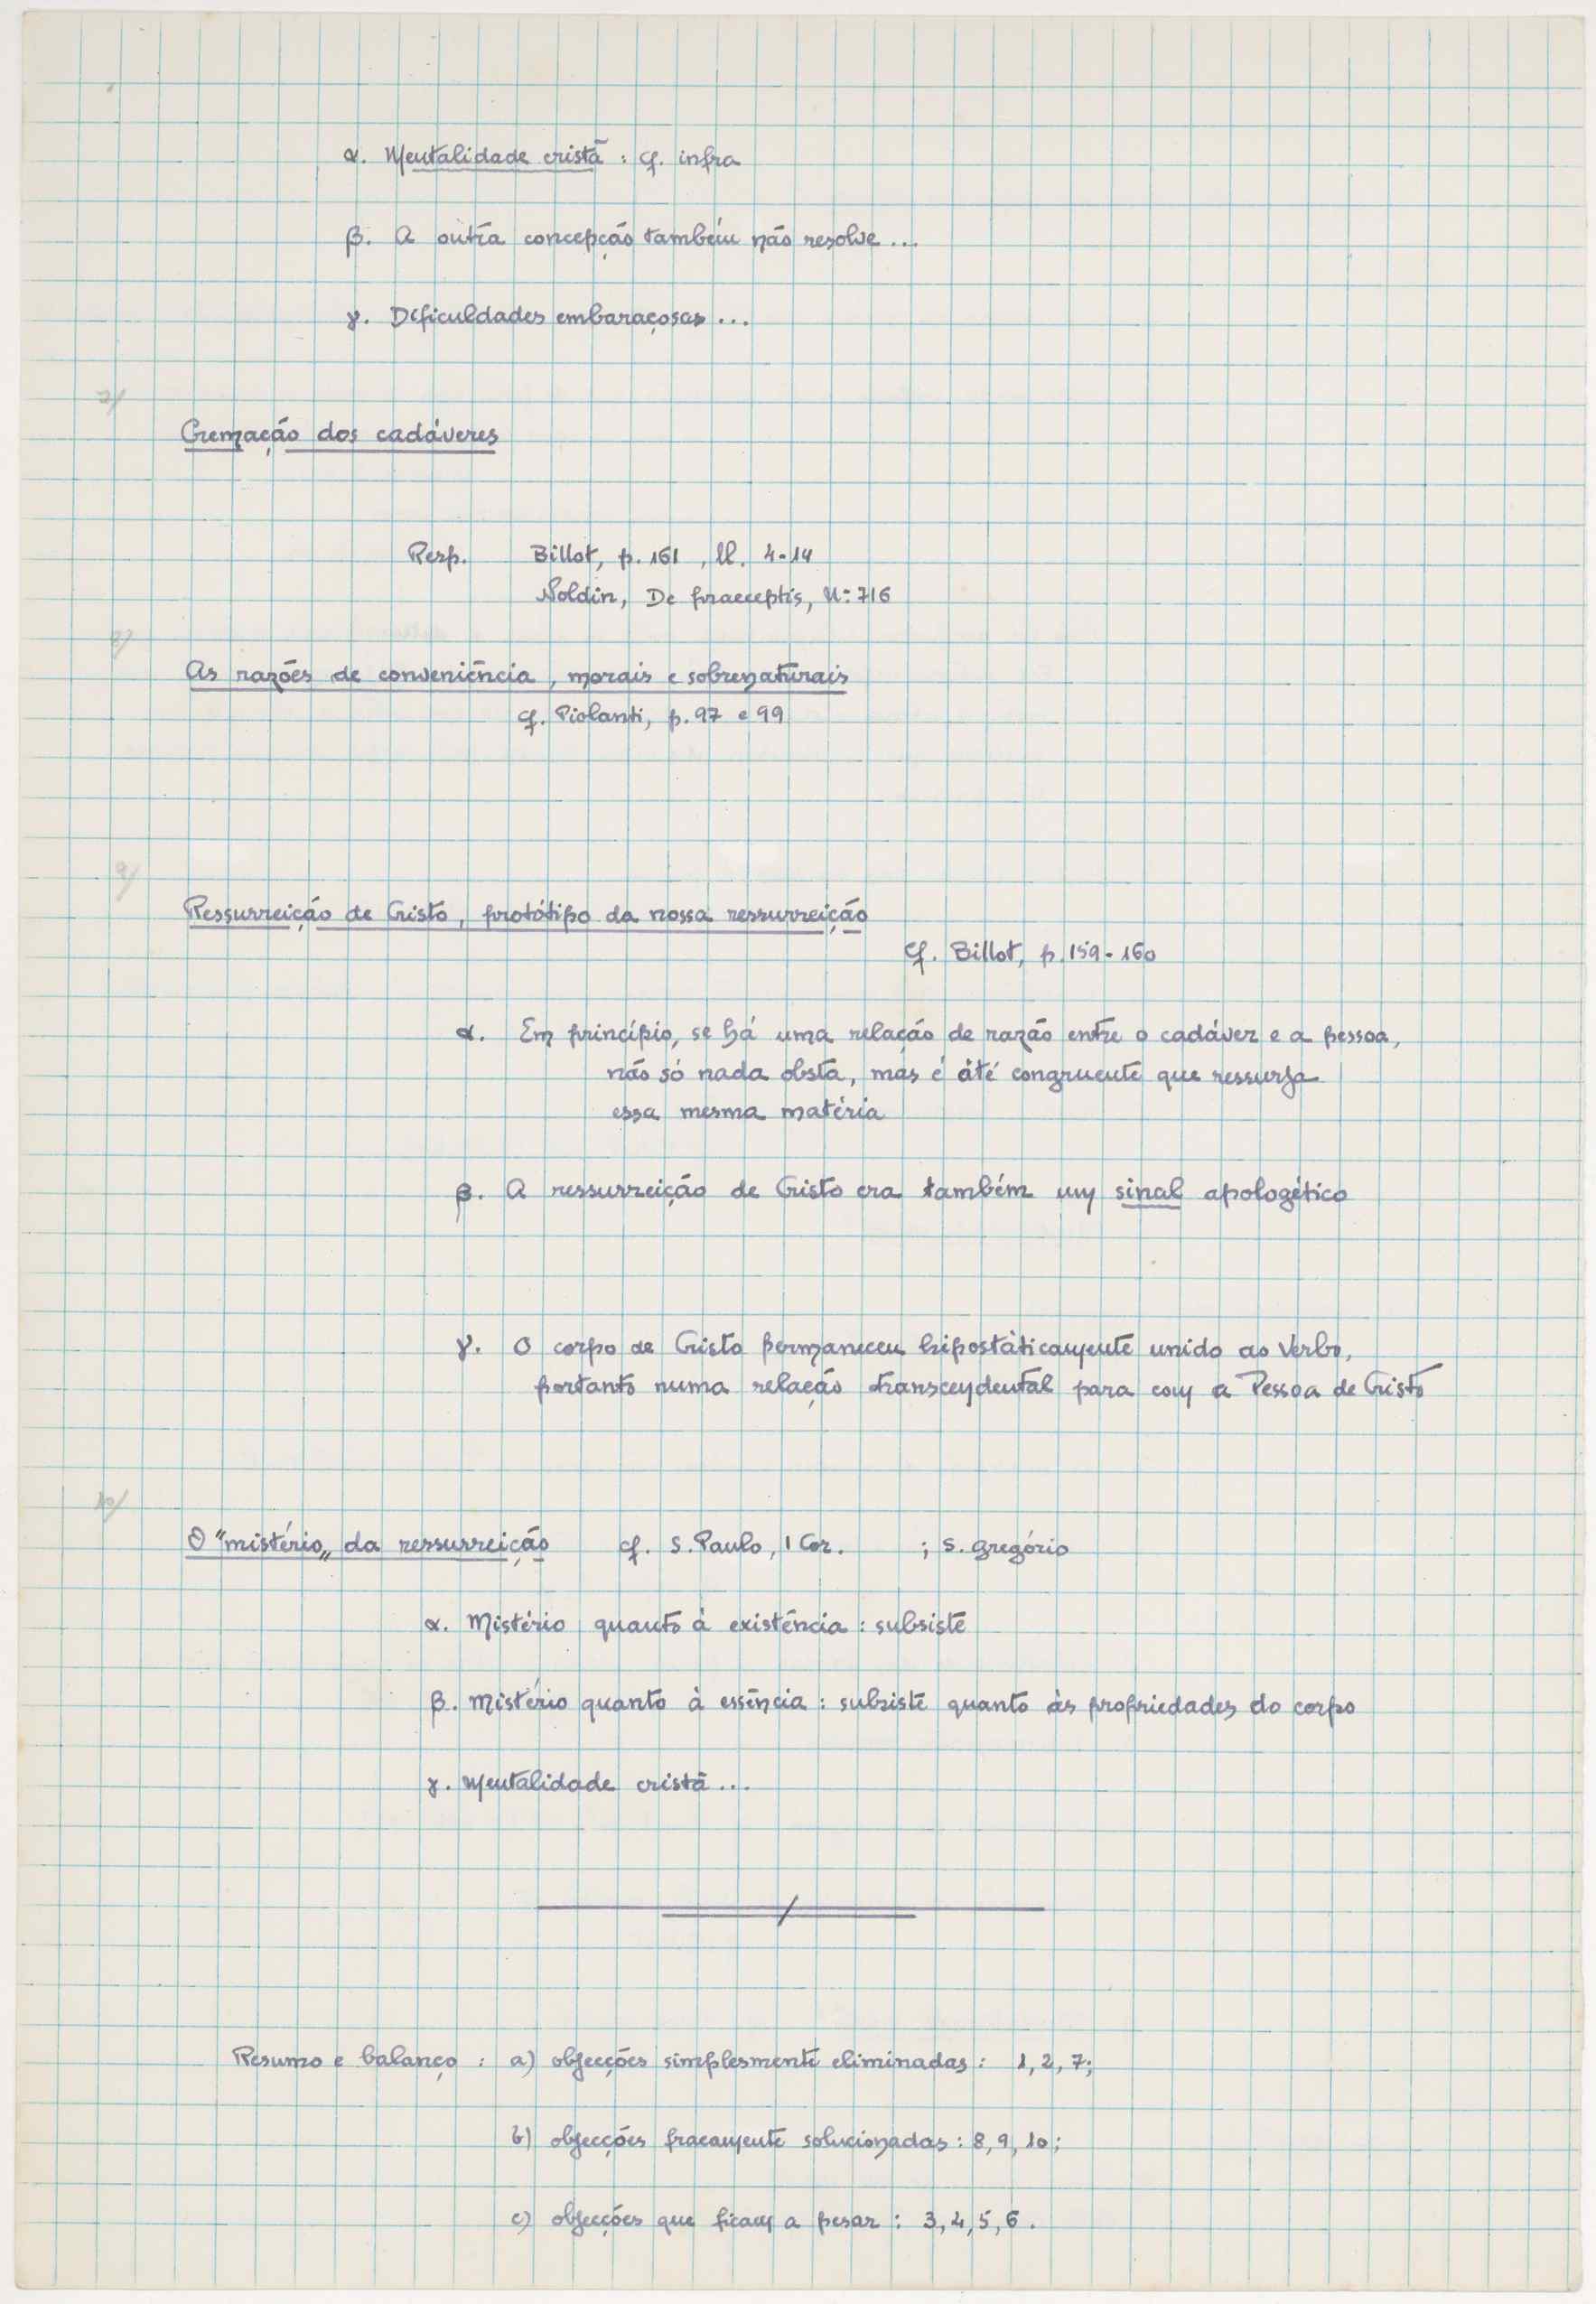 α. Mentalidade cristã : cf. infra
β. A outra concepção também não resolve ...
γ. Dificuldades embaraçosas ...
7/
Cremação dos cadáveres
Resp. Billot, p. 161, ll. 4-14
Noldin, De praeceptis, N: 716
8/
As razões de conveniência, morais e sobrenaturais
cf. Piolanti, p. 97 e 99
9/
Ressurreição de Cristo, protótipo da nossa ressurreição
Cf. Billot, p. 159-160
α. Em princípio, se há uma relação de razão entre o cadáver e a pessoa,
não só nada obsta, mas é até congruente que ressurja
essa mesma matéria
β. A ressurreição de Cristo era também um sinal apologético
γ. O corpo de Cristo permaneceu hipostàticamente unido ao Verbo,
portanto numa relação transcendental para com a Pessoa de Cristo
10/
O "mistério„ da ressurreição cf. S. Paulo, 1 Cor. ; S. Gregório
α. Mistério quanto à existência : subsiste
β. Mistério quanto à essência : subsiste quanto às propriedades do corpo
γ. Mentalidade cristã ...
Resumo e balanço : a) objecções simplesmente eliminadas : 1, 2, 7;
b) objecções fracamente solucionadas : 8, 9, 10;
c) objecções que ficam a pesar : 3, 4, 5, 6.